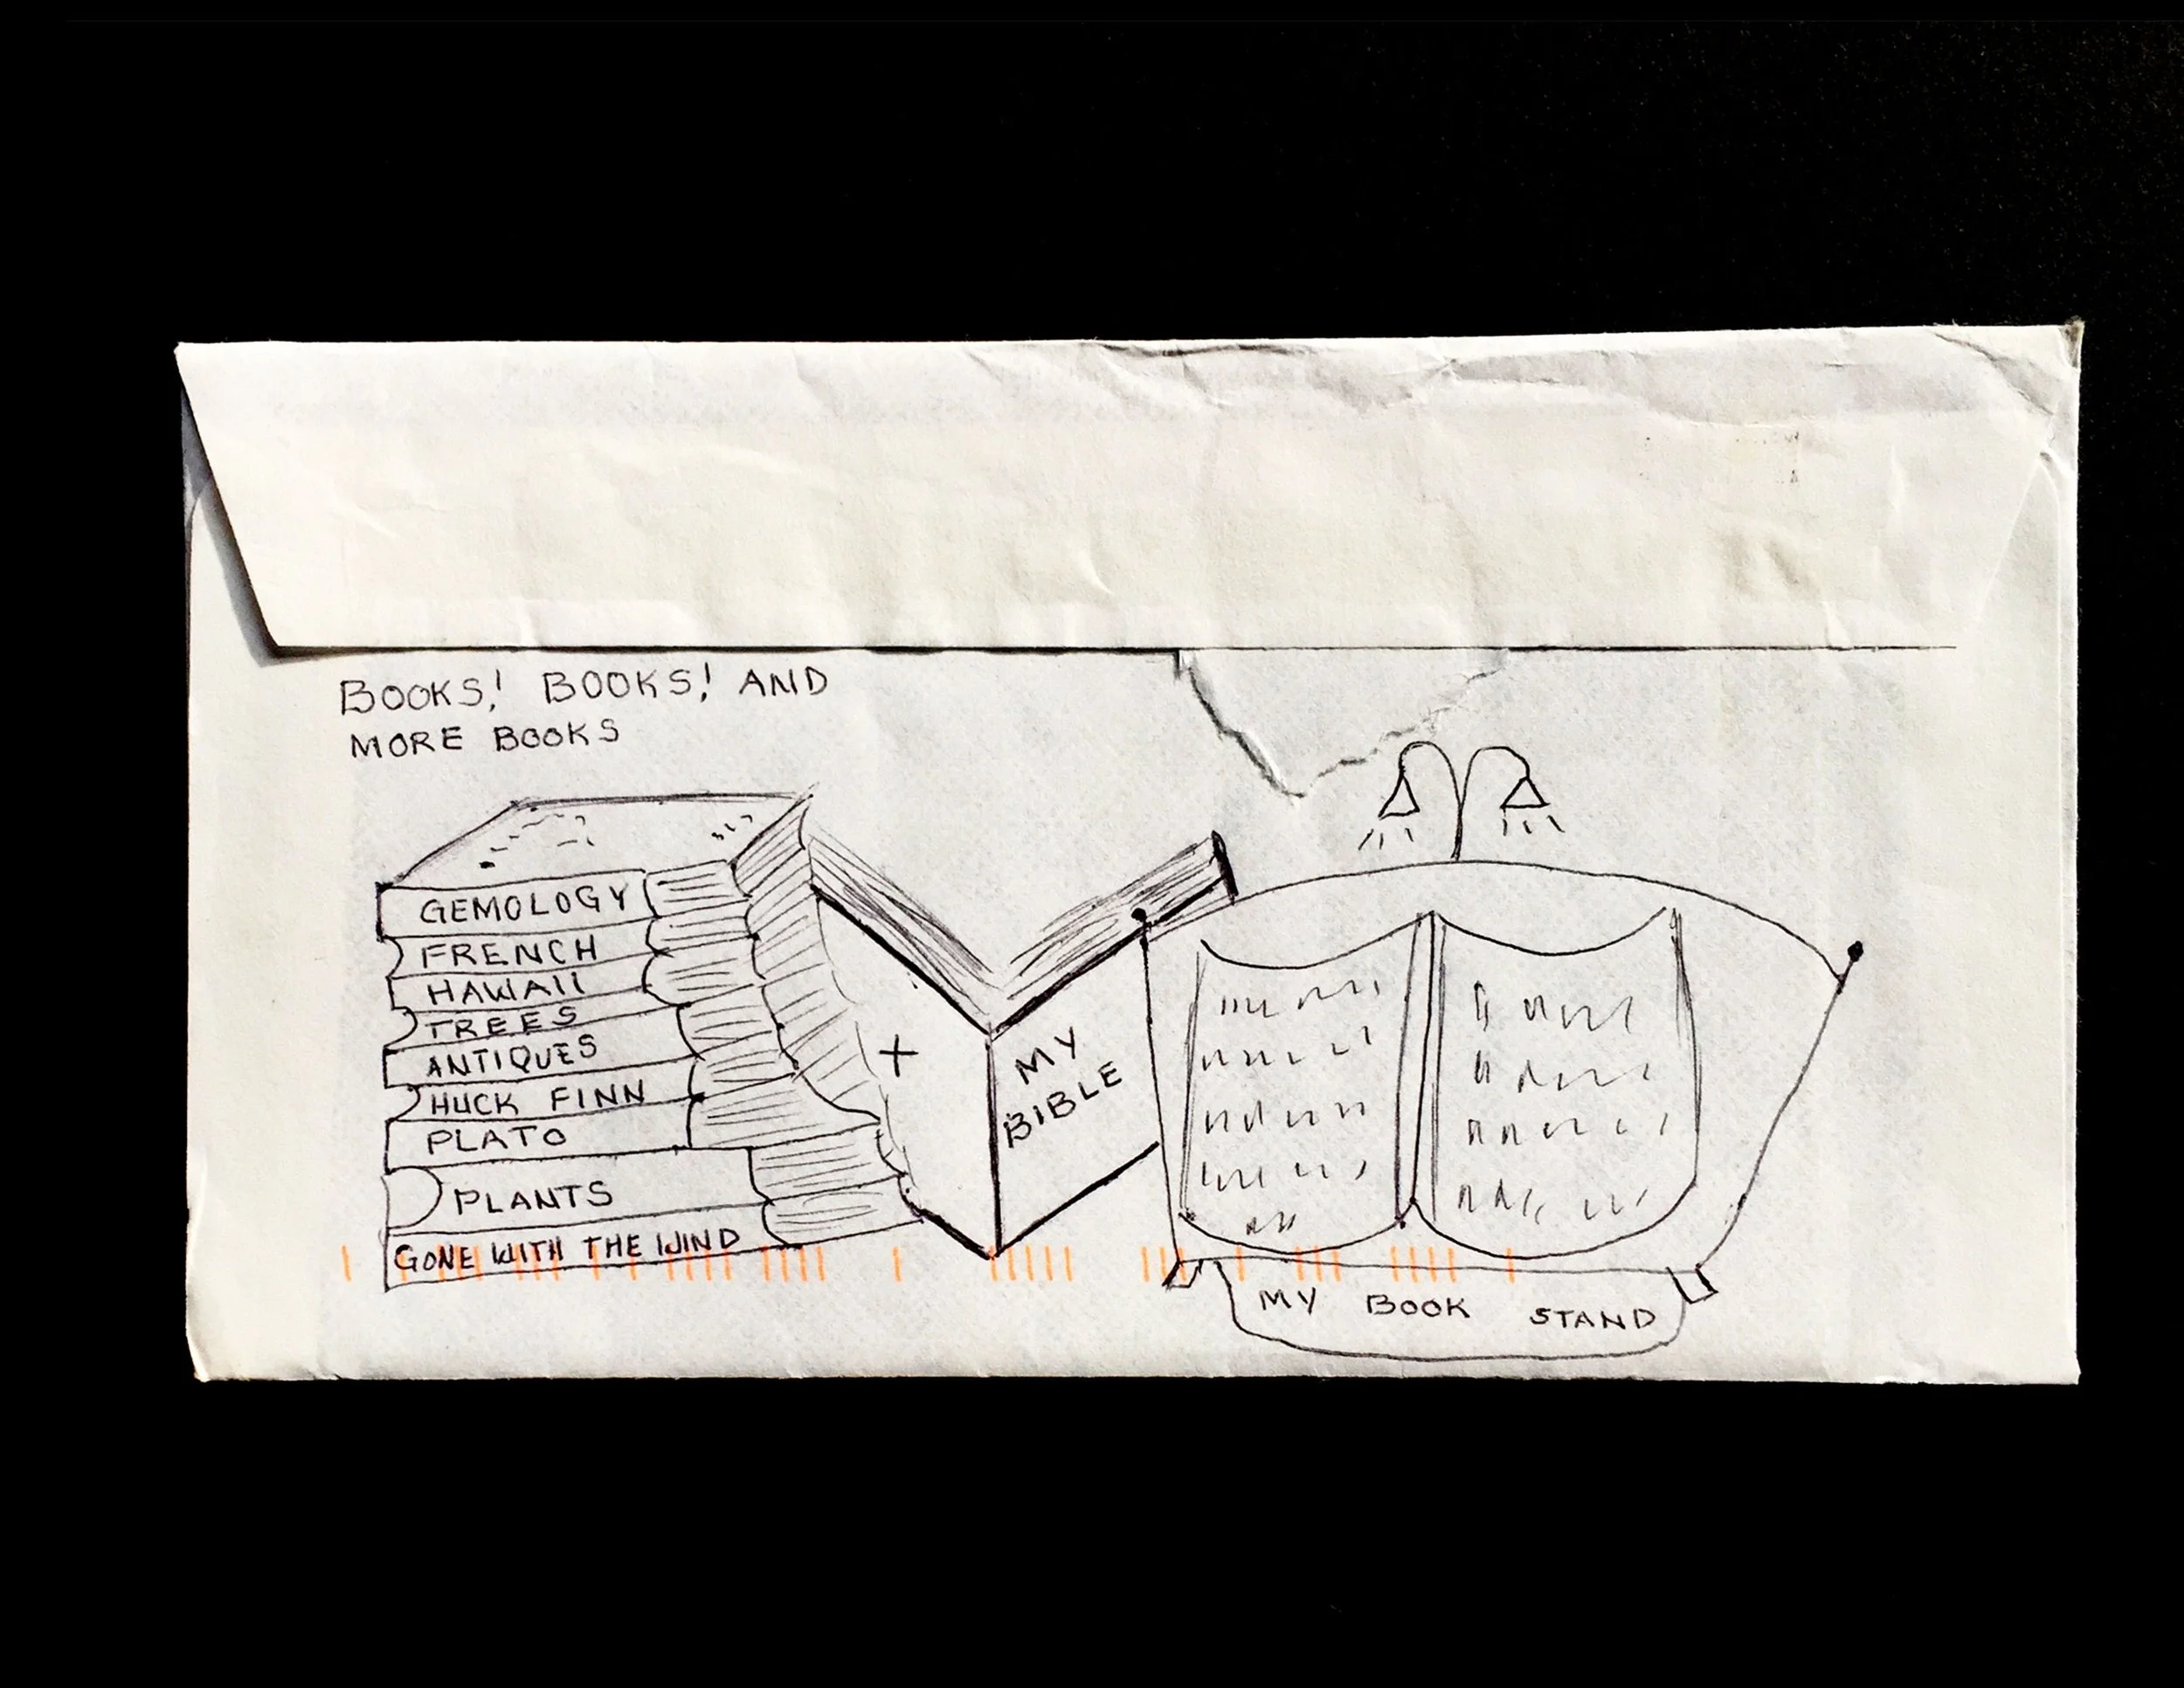 BOOKS! BOOKS! AND
MORE BOOKS
GEMOLOGY
FRENCH
HAWAII
TREES
ANTIQUES
HUCK FINN
PLATO
PLANTS
GONE WITH THE WIND
MY
BIBLE
MY BOOK STAND